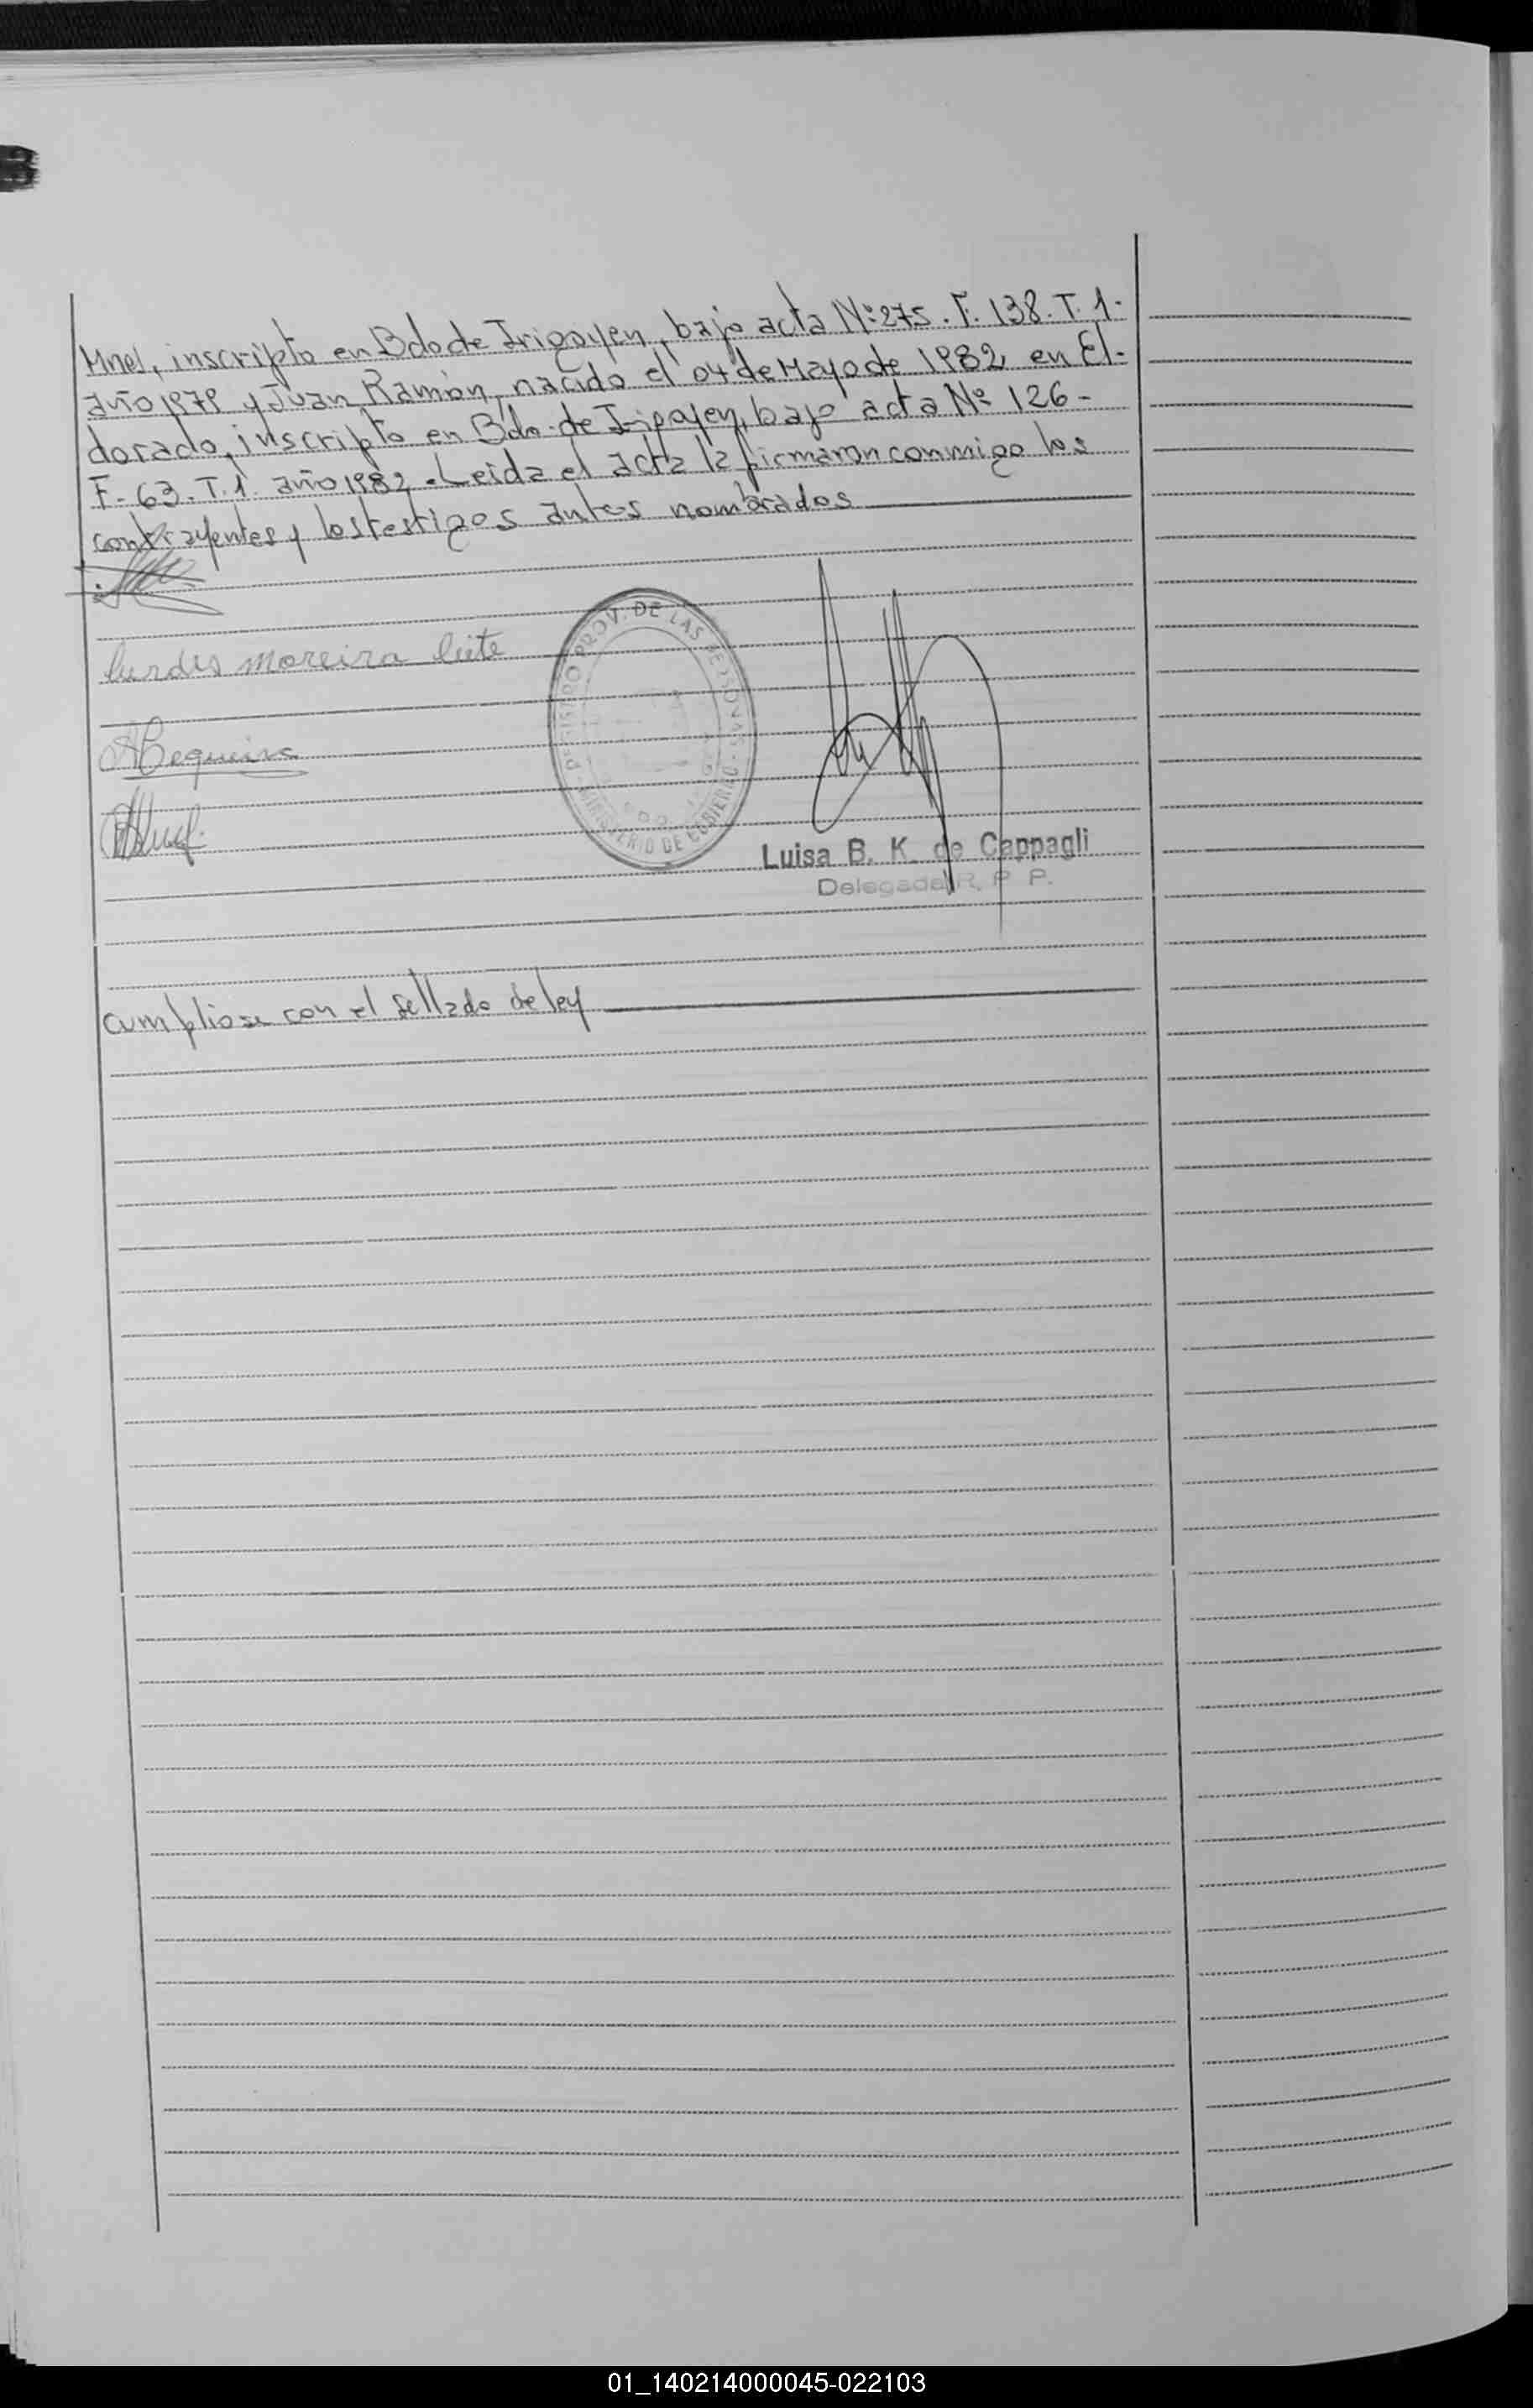 Mnel, inscripto en Bdo de Irigoyen, bajo acta Nº 275. F. 138. T. 1-
año 1979 y Juan Ramón, nacido el 04 de Mayo de 1982, en El-
dorado, inscripto en Bdo. de Irigoyen, bajo acta Nº 126-
F. 63. T. 1. año 1982. Leida el acta la firmaron conmigo los
contrayentes y los testigos antes nombrados
lurdes moreira leite
REGISTRO PROV. DE LAS PERSONAS
MINISTERIO DE GOBIERNO
Luisa B. K. de Cappagli
Delegada R. P. P.
cumpliose con el sellado de ley
01_140214000045-022103